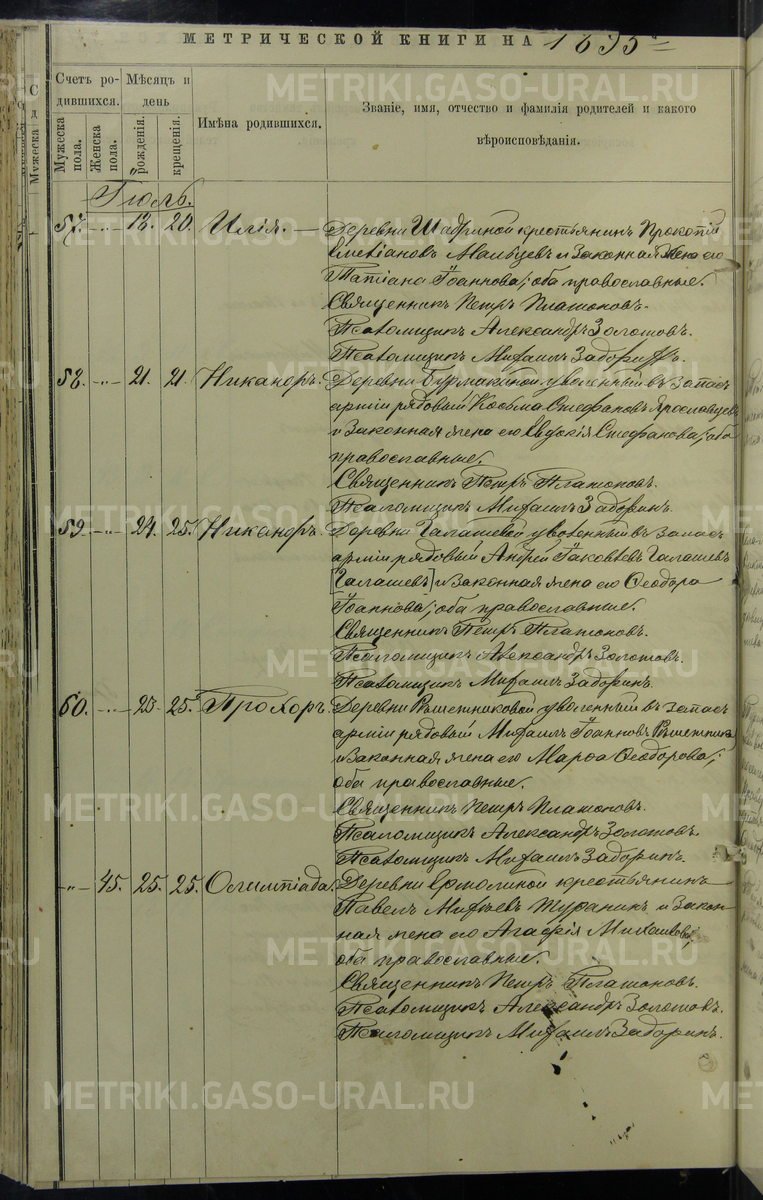 МЕТРИЧЕСКОЙ КНИГИ НА 1895
Счетъ родившихся.
Мѣсяцъ и день
Мужеска пола.
Женска пола.
рожденія.
крещенія.
Имѣна родившихся.
Званіе, имя, отчество и фамилія родителей и какого
вѣроисповѣданія.
Іюль.
57. -"- 18. 20. Илія. — Деревни Шадриной крестьянинъ Прокопій
Мальцевъ и законная жена его
Татіана Іоаннова; оба православные.
Священникъ Петръ Платоновъ.
Псаломщикъ Александръ Золотовъ.
Псаломщикъ Михаилъ Задоринъ.
58. -"- 21. 21. Никаноръ. Деревни Бурмакиной уволенный въ запасъ
арміи рядовый Косьма Стефановъ Ярославцевъ
и законная жена его Евдокія Стефанова; оба
православные.
Священникъ Петръ Платоновъ.
Псаломщикъ Михаилъ Задоринъ.
59. -"- 24. 25. Никаноръ. Деревни Галашевой уволенный въ запасъ
арміи рядовый Андрей Іаковлевъ Галашевъ
[Галашевъ] и законная жена его Ѳеодора
Іоаннова; оба православные.
Священникъ Петръ Платоновъ.
Псаломщикъ Александръ Золотовъ.
Псаломщикъ Михаилъ Задоринъ.
60. -"- 23. 25. Прохоръ. Деревни Решетниковой уволенный въ запасъ
арміи рядовый Михаилъ Іоанновъ
и законная жена его Марѳа Ѳеодорова;
оба православные.
Священникъ Петръ Платоновъ.
Псаломщикъ Александръ Золотовъ.
Псаломщикъ Михаилъ Задоринъ.
-"- 45. 25. 25. Олимпіада. Деревни Ермолиной крестьянинъ
Павелъ и закон-
ная жена его Агафія Михаилова;
оба православные.
Священникъ Петръ Платоновъ.
Псаломщикъ Александръ Золотовъ.
Псаломщикъ Михаилъ Задоринъ.
METRIKI.GASO-URAL.RU